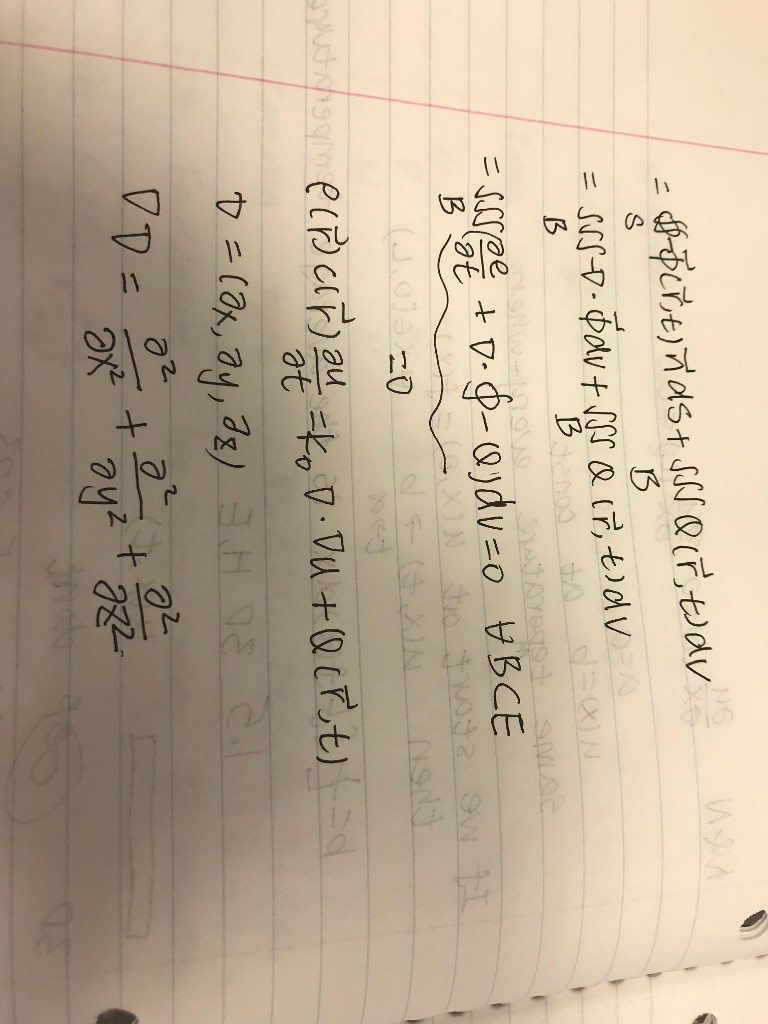 = ∯ φ⃗(r⃗,t) n⃗ ds + ∭ Q(r⃗,t)dv
S B
= ∭ ∇·φ⃗ dv + ∭ Q(r⃗,t)dv
B B
= ∭(∂e/∂t + ∇·φ - Q)dv = 0 ∀BCE
B
=0
ρ(r⃗)c(r⃗) ∂u/∂t = k₀ ∇·∇u + Q(r⃗,t)
∇ = (∂x, ∂y, ∂z)
∇∇ = ∂²/∂x² + ∂²/∂y² + ∂²/∂z²